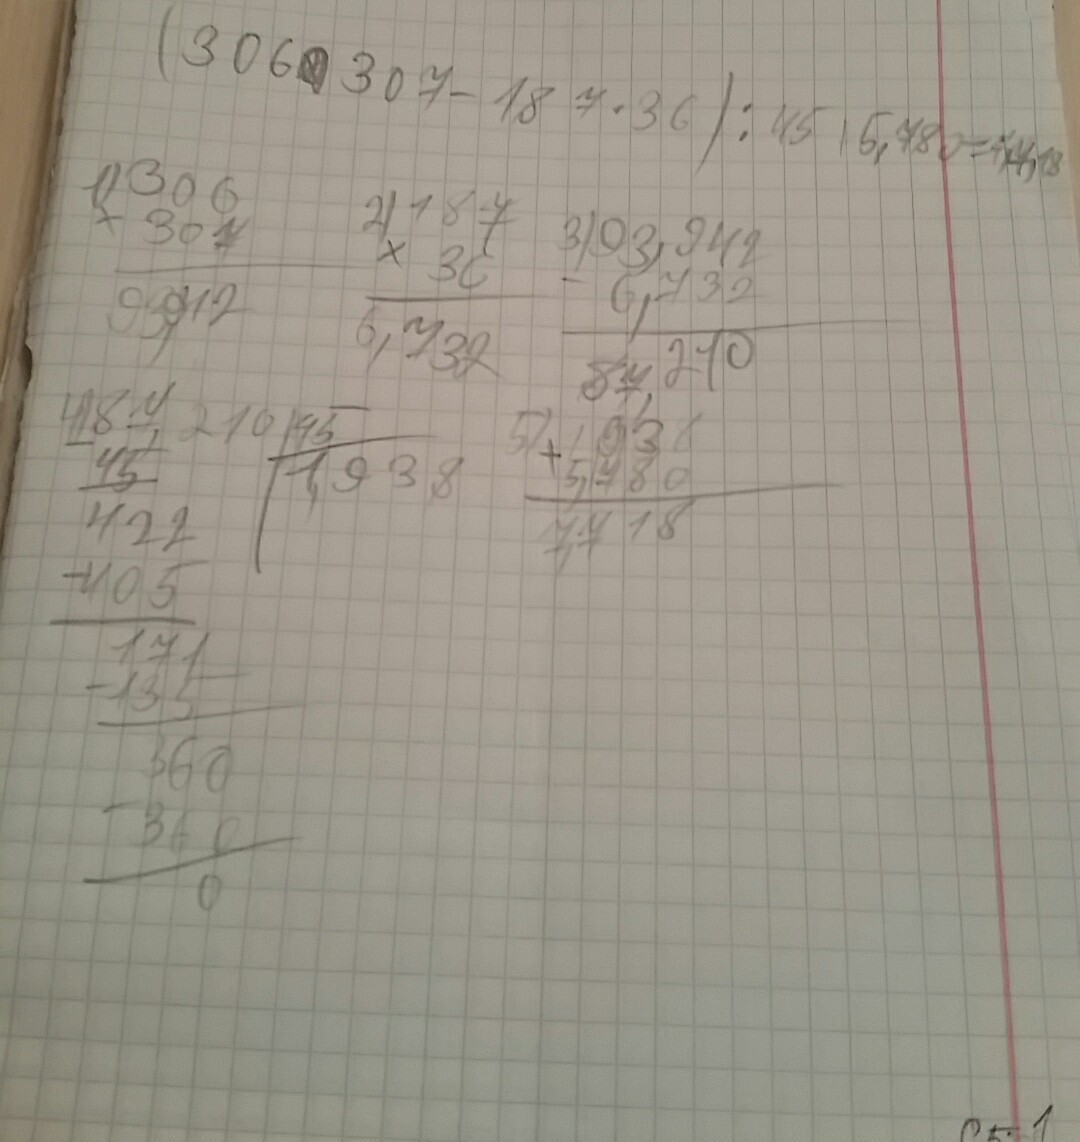 (306 307 - 187 · 36) : 45 + 5,780 = 7,718
1) 306
× 307
93,942
2) 187
× 36
6,732
3) 93,942
- 6,732
87,210
4) 87,210 | 45
- 45
1,938
422
- 405
171
- 135
360
- 360
0
5) 1,938
+ 5,780
7,718